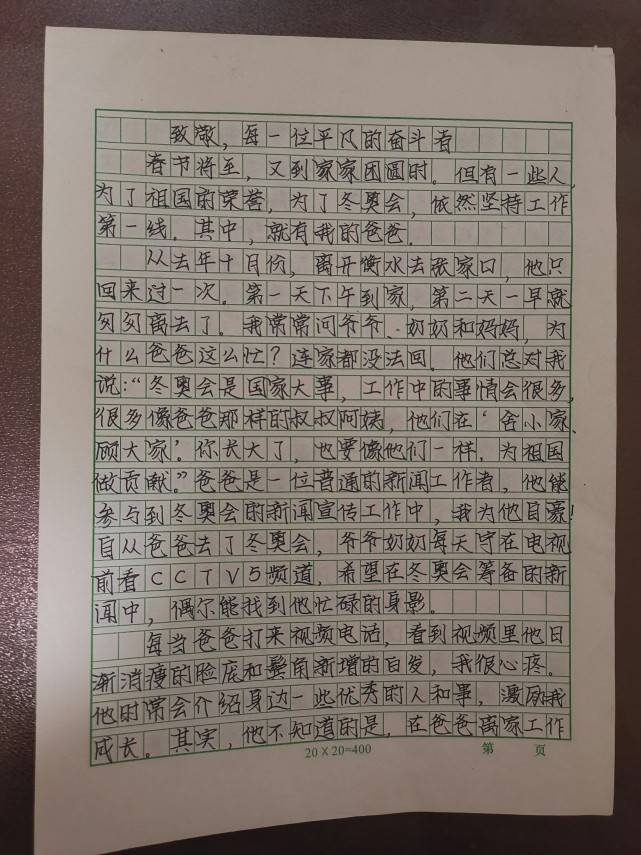 致敬，每一位平凡的奋斗者
春节将至，又到家家团圆时。但有一些人，
为了祖国的荣誉，为了冬奥会，依然坚持工作
第一线。其中，就有我的爸爸。
从去年十月份，离开衡水去张家口，他只
回来过一次。第一天下午到家，第二天一早就
匆匆离去了。我常常问爷爷、奶奶和妈妈，为
什么爸爸这么忙？连家都没法回。他们总对我
说：“冬奥会是国家大事，工作中的事情会很多，
很多像爸爸那样的叔叔阿姨，他们在‘舍小家、
顾大家’。你长大了，也要像他们一样，为祖国
做贡献。”爸爸是一位普通的新闻工作者，他能
参与到冬奥会的新闻宣传工作中，我为他自豪！
自从爸爸去了冬奥会，爷爷奶奶每天守在电视
前看CCTV5频道，希望在冬奥会筹备的新
闻中，偶尔能找到他忙碌的身影。
每当爸爸打来视频电话，看到视频里他日
渐消瘦的脸庞和鬓角新增的白发，我很心疼。
他时常会介绍身边一些优秀的人和事，激励我
成长。其实，他不知道的是，在爸爸离家工作
20×20=400 第 页